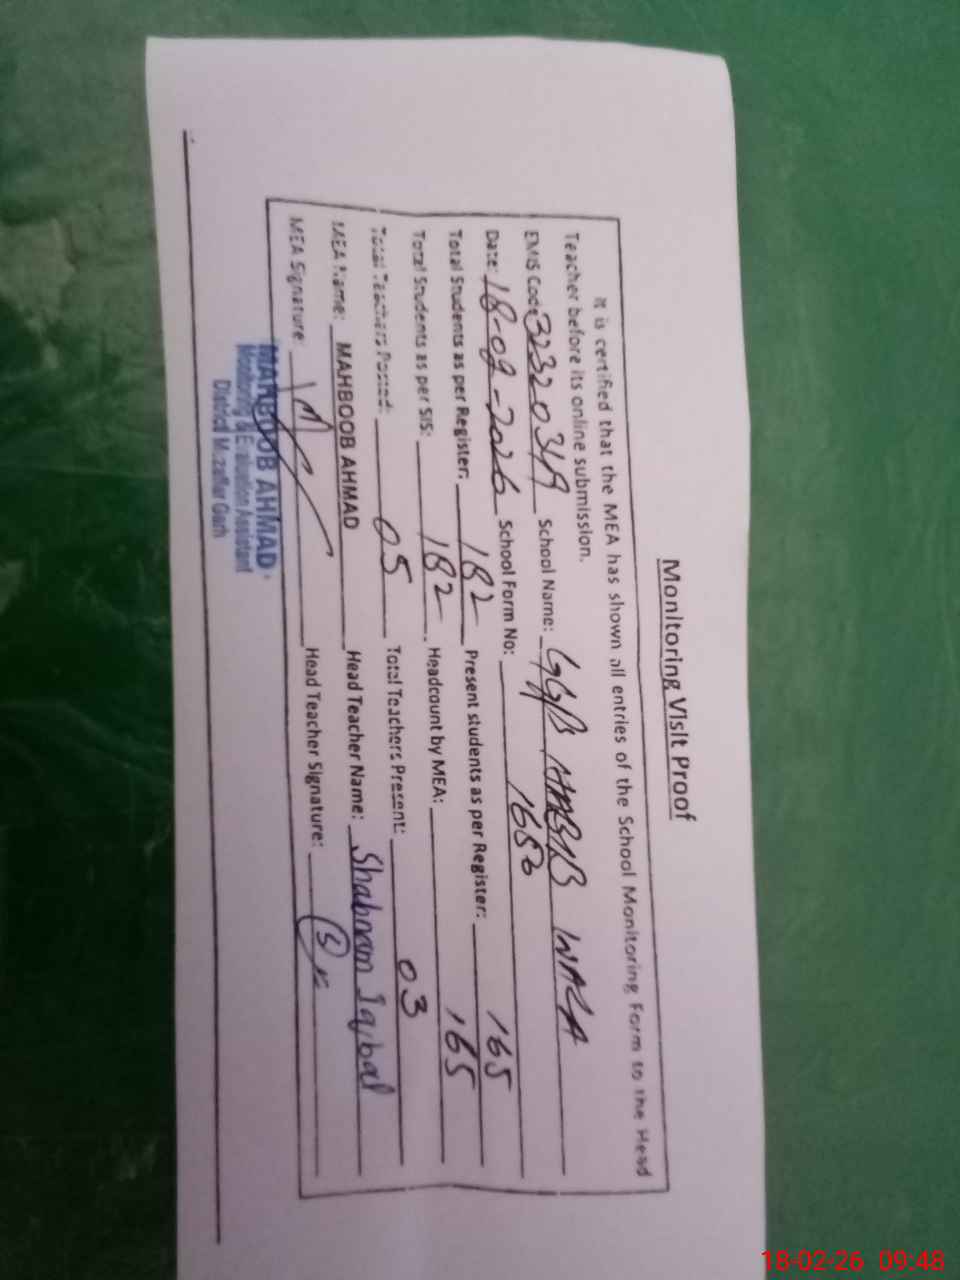 Monitoring Visit Proof
It is certified that the MEA has shown all entries of the School Monitoring Form to the Head
Teacher before its online submission.
EMIS Code: School Name: WALA
Date: 18-09-2026 School Form No:
Total Students as per Register: 182 Present students as per Register: 165
Total Students as per SIS: 182 Headcount by MEA: 165
Total Teachers Posted: 05 Total Teachers Present: 03
MEA Name: MAHBOOB AHMAD Head Teacher Name: Shabnam Iqbal
MEA Signature: Head Teacher Signature:
MAHBOOB AHMAD
Monitoring & Evaluation Assistant
District Muzaffar Garh
18-02-26 09:48